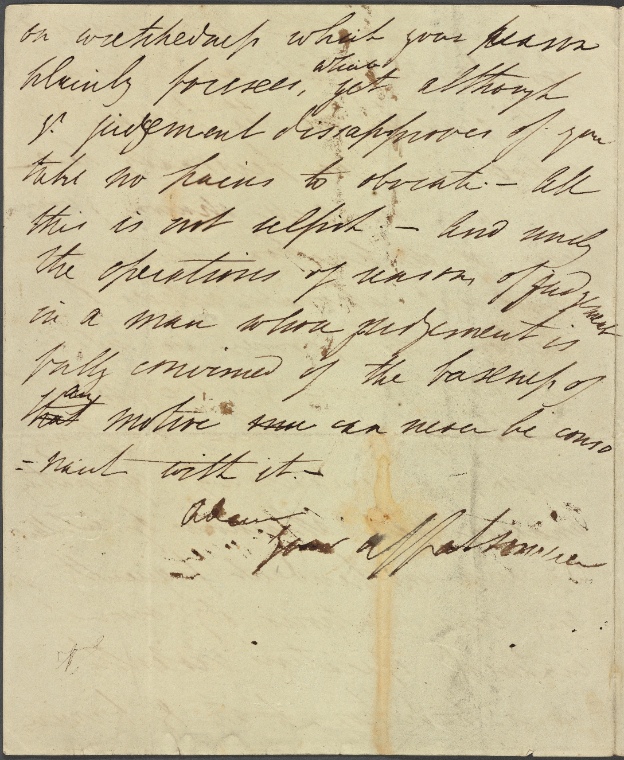 on wretchedness which your reason
plainly foresees, which yet although
yr. judgement disapproves of you
take no pains to obviate. – All
this is not selfish. – And surely
the operations of reason, of judgement
in a man whose judgement is
fully convinced of the baseness of
that any motive can never be conso
=nant with it. –
Adieu
Your aff